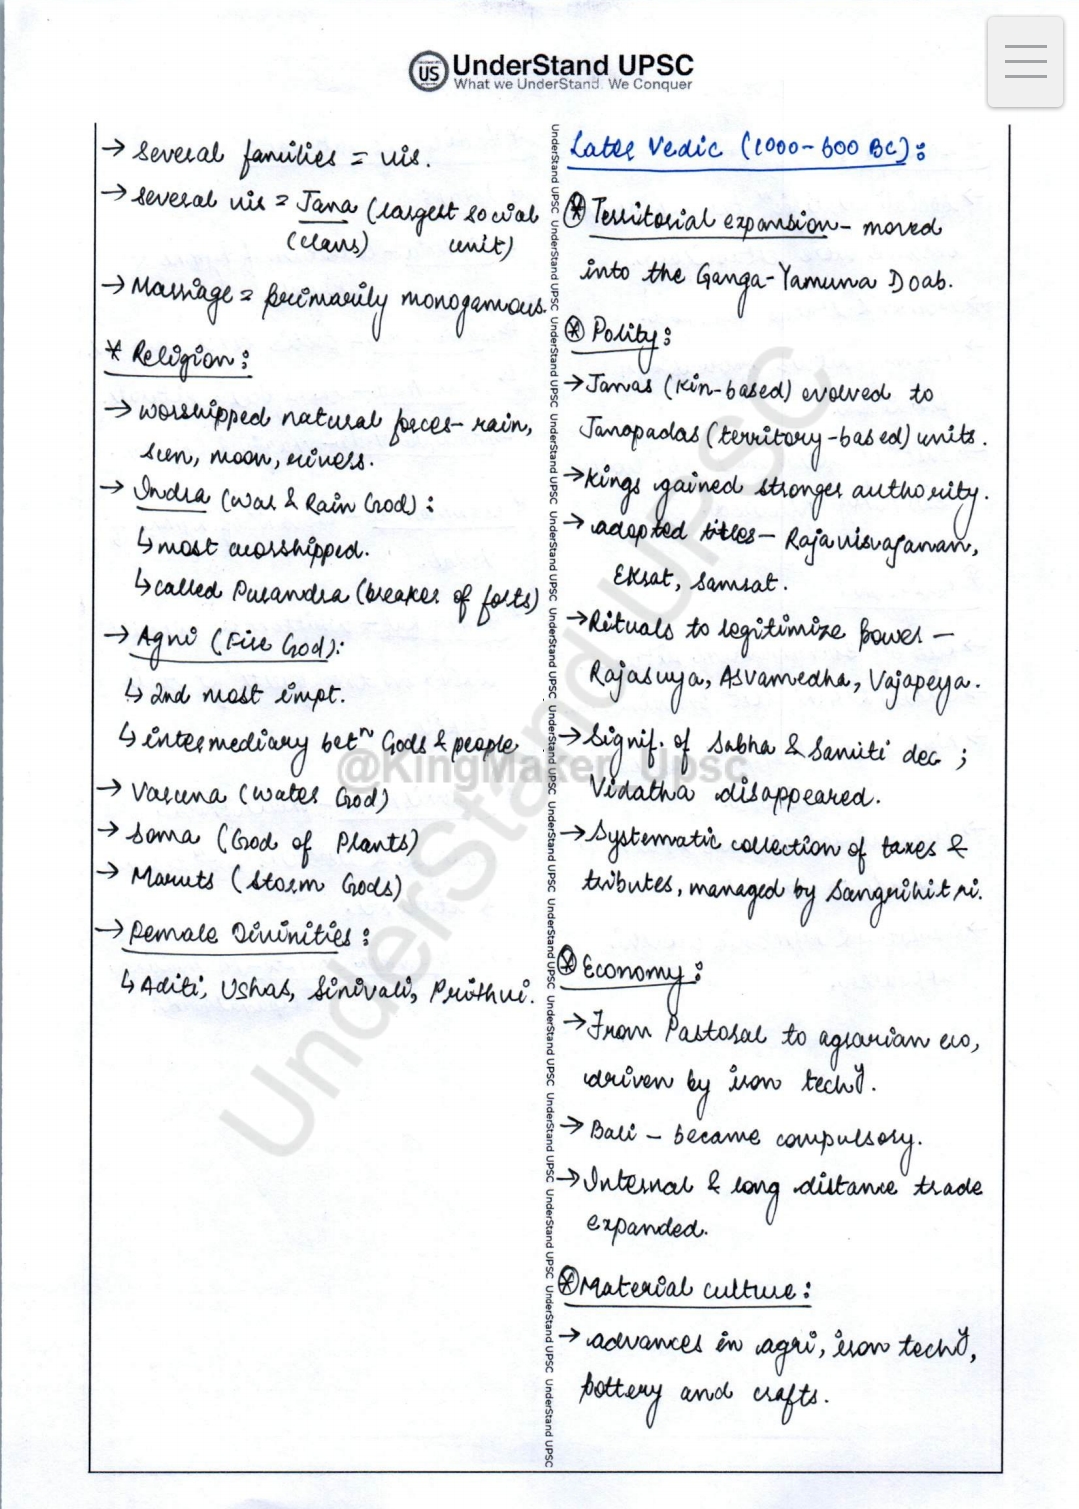 UnderStand UPSC
US
What we UnderStand. We Conquer
→ Several families = vis.
→ Several vis = Jana (largest social
(clans) unit)
→ Marriage = primarily monogamous.
* Religion:
→ worshipped natural forces- rain,
sun, moon, rivers.
→ Indra (War & Rain God):
↳ most worshipped.
↳ called Purandra (breaker of forts)
→ Agni (Fire God):
↳ 2nd most impt.
↳ intermediary betⁿ Gods & people
→ Varuna (Water God)
→ Soma (God of Plants)
→ Maruts (Storm Gods)
→ Female Divinities:
↳ Aditi, Ushas, Sinivali, Prithvi.
Later Vedic (1000-600 BC):
* Territorial expansion- moved
into the Ganga-Yamuna Doab.
* Polity:
→ Janas (Kin-based) evolved to
Janapadas (territory-based) units.
→ Kings gained stronger authority.
→ adopted titles- Rajavisvajanan,
Ekrat, Samrat.
→ Rituals to legitimize power –
Rajasuya, Asvamedha, Vajapeya.
→ Signif. of Sabha & Samiti dec ;
Vidatha disappeared.
→ Systematic collection of taxes &
tributes, managed by Sangrihitri.
* Economy:
→ From Pastoral to agrarian eco,
driven by iron techʸ.
→ Bali – became compulsory.
→ Internal & long distance trade
expanded.
* Material culture:
→ advances in agri, iron techʸ,
pottery and crafts.
UnderStand UPSC UnderStand UPSC UnderStand UPSC UnderStand UPSC UnderStand UPSC UnderStand UPSC UnderStand UPSC UnderStand UPSC UnderStand UPSC UnderStand UPSC UnderStand UPSC UnderStand UPSC UnderStand UPSC UnderStand UPSC
@KingMaker_Upsc
UnderStand UPSC